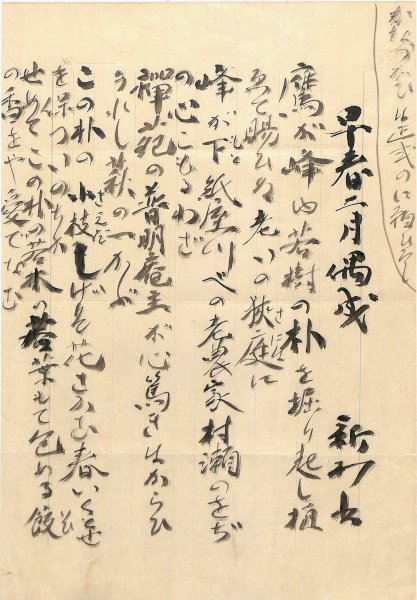 かなづかひは正式のに願ひます
早春二月偶成 新村出
鷹が峰ゆ若樹の朴を堀り起し植
ゑて賜ひぬ老いの狭庭に
峰が下紙屋川べの老農家村瀬のをぢ
の心こもるわざ
禅苑の普明庵主が心篤きはからひ
うれし萩の一かぶ
この朴の小枝しげり花さかむ春いく
を保ついのちか
せめてこの朴の若木の若葉もて包める餃
の香をや愛でなむ